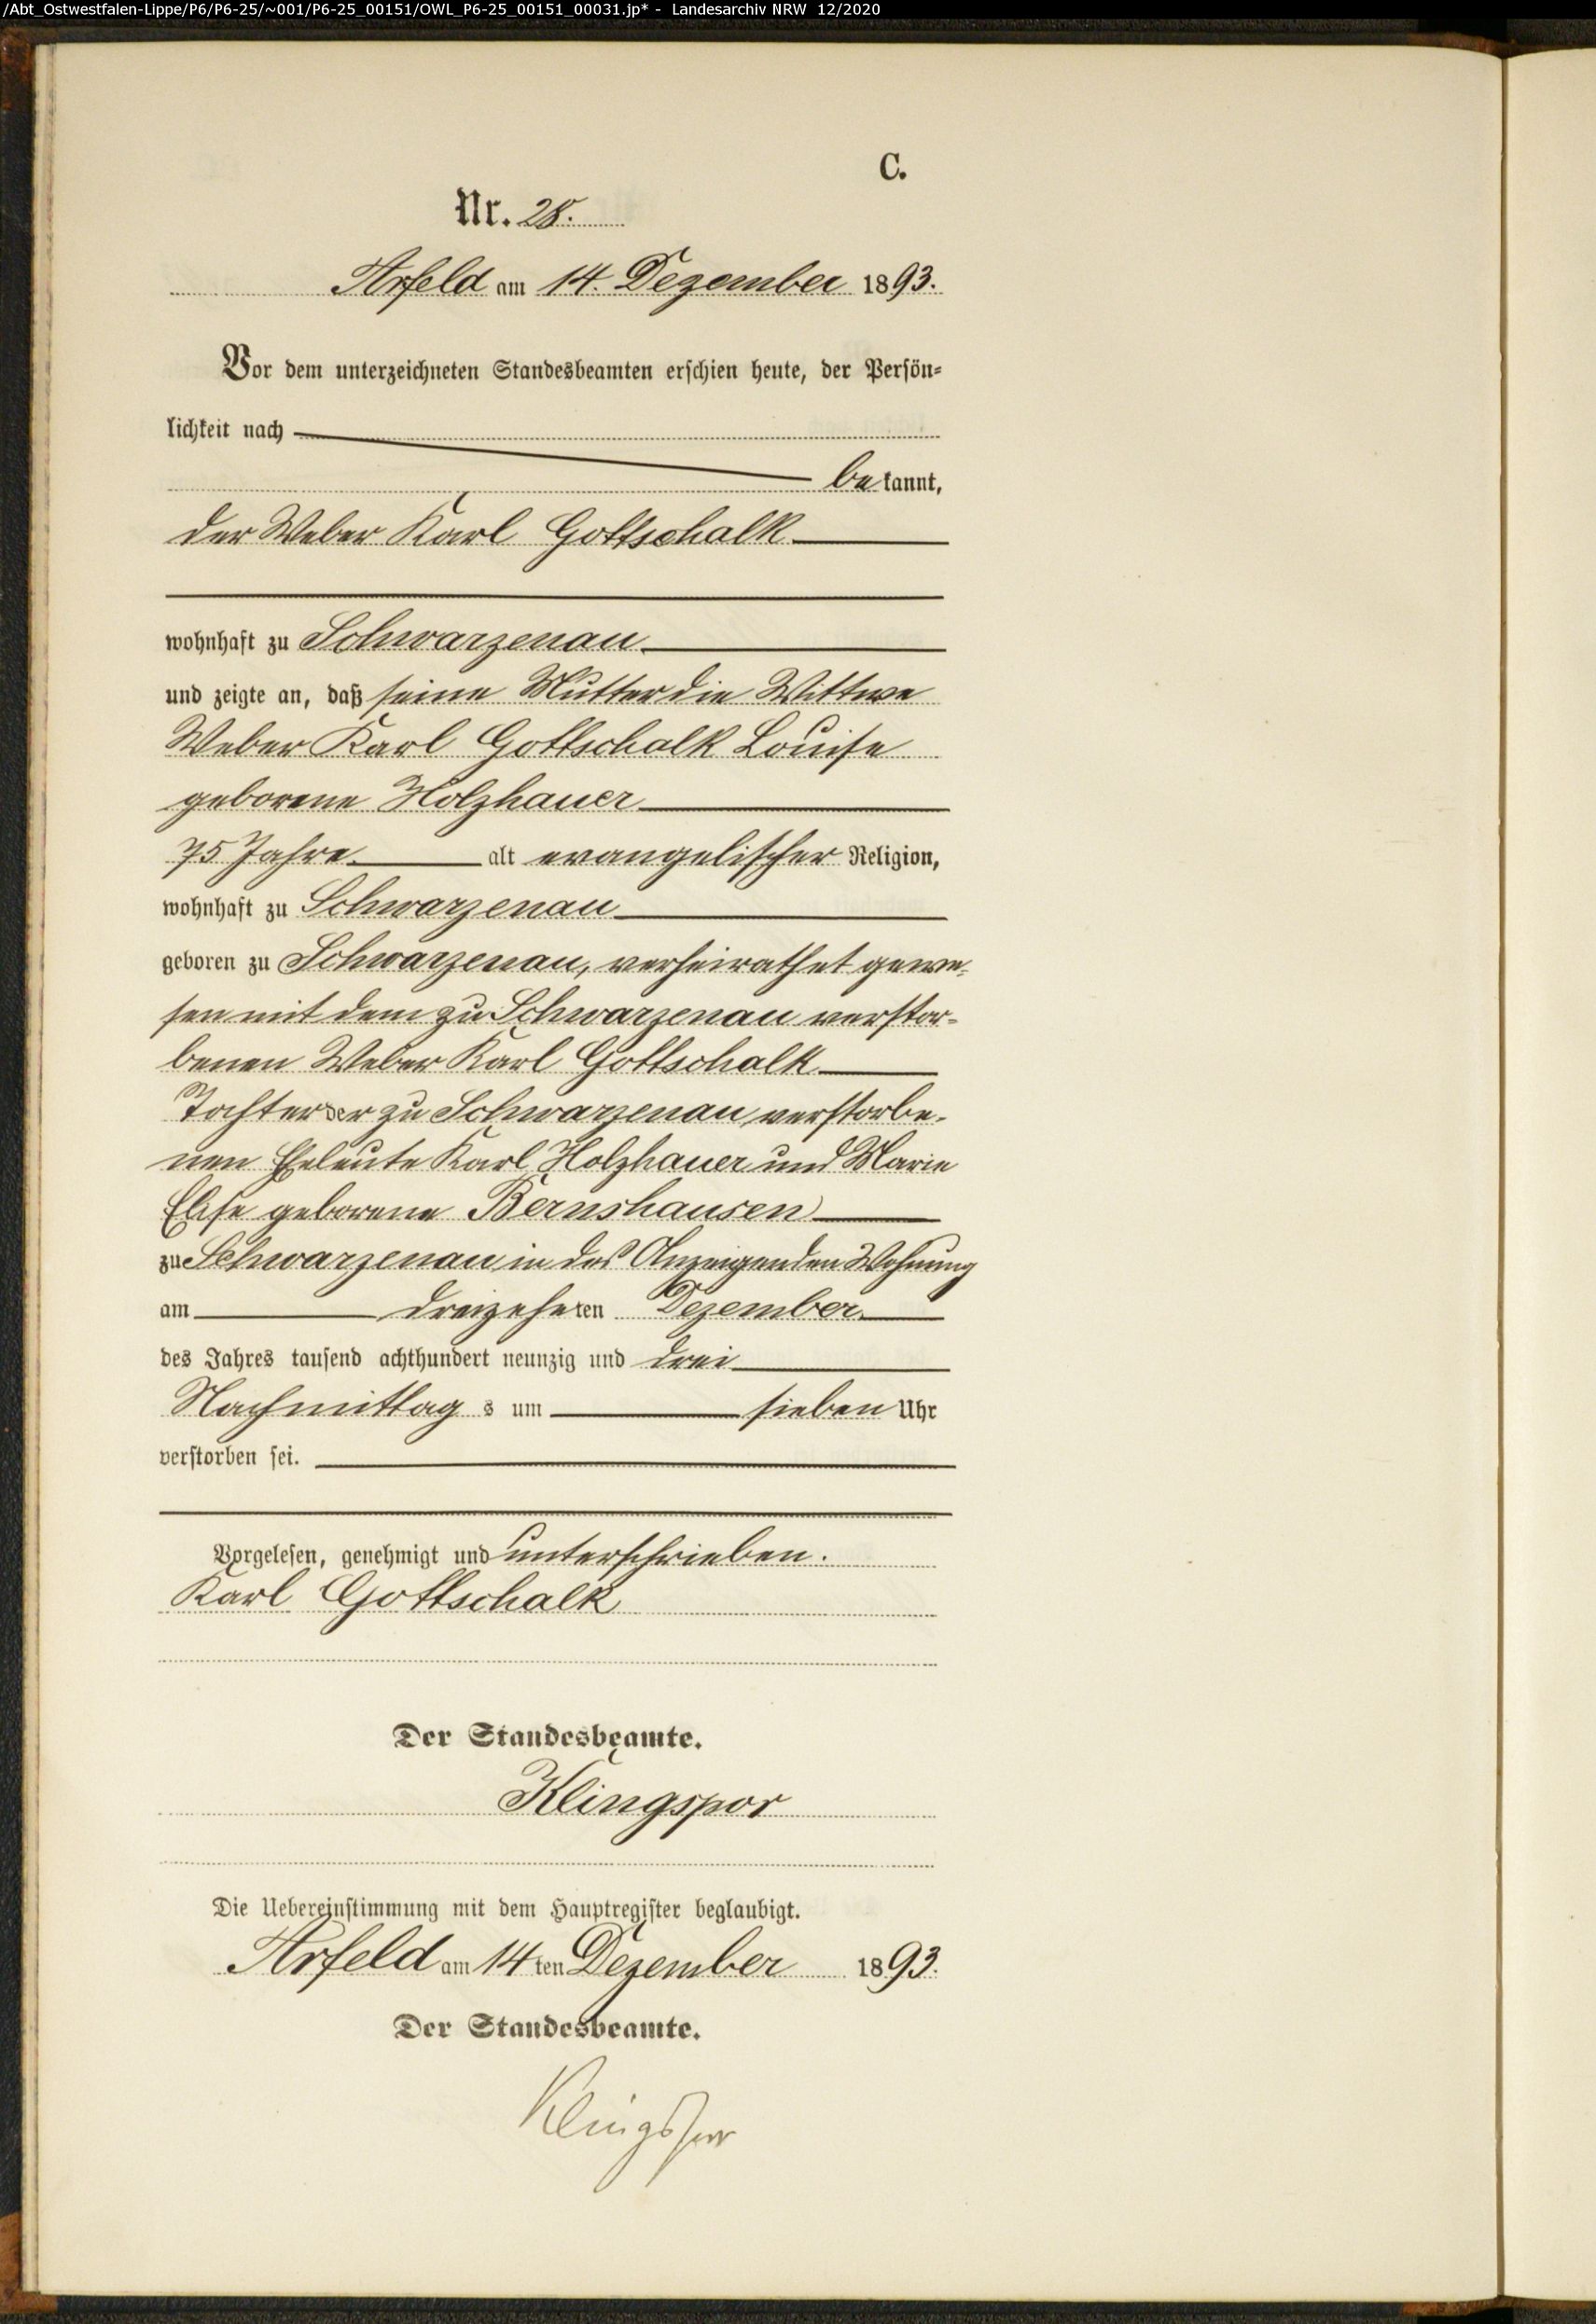 /Abt_Ostwestfalen-Lippe/P6/P6-25/~001/P6-25_00151/OWL_P6-25_00151_00031.jp* - Landesarchiv NRW 12/2020
C.
Nr. 28.
Arfeld am 14. Dezember 1893.
Vor dem unterzeichneten Standesbeamten erschien heute, der Persön-
lichkeit nach
bekannt,
der Weber Karl Gottschalk
wohnhaft zu Schwarzenau
und zeigte an, daß seine Mutter die Wittwe
Weber Karl Gottschalk Louise
geborene Holzhauer
75 Jahre alt evangelischer Religion,
wohnhaft zu Schwarzenau
geboren zu Schwarzenau, verheirathet gewe-
sen mit dem zu Schwarzenau verstor-
benen Weber Karl Gottschalk
Tochter der zu Schwarzenau verstorbe-
nen Eheleute Karl Holzhauer und Marie
Elise geborene Bernshausen
zu Schwarzenau in des Anzeigenden Wohnung
am dreizehnten Dezember
des Jahres tausend achthundert neunzig und drei
Nachmittags um sieben Uhr
verstorben sei.
Vorgelesen, genehmigt und unterschrieben.
Karl Gottschalk
Der Standesbeamte.
Klingspor
Die Uebereinstimmung mit dem Hauptregister beglaubigt.
Arfeld am 14ten Dezember 1893.
Der Standesbeamte.
Klingspor